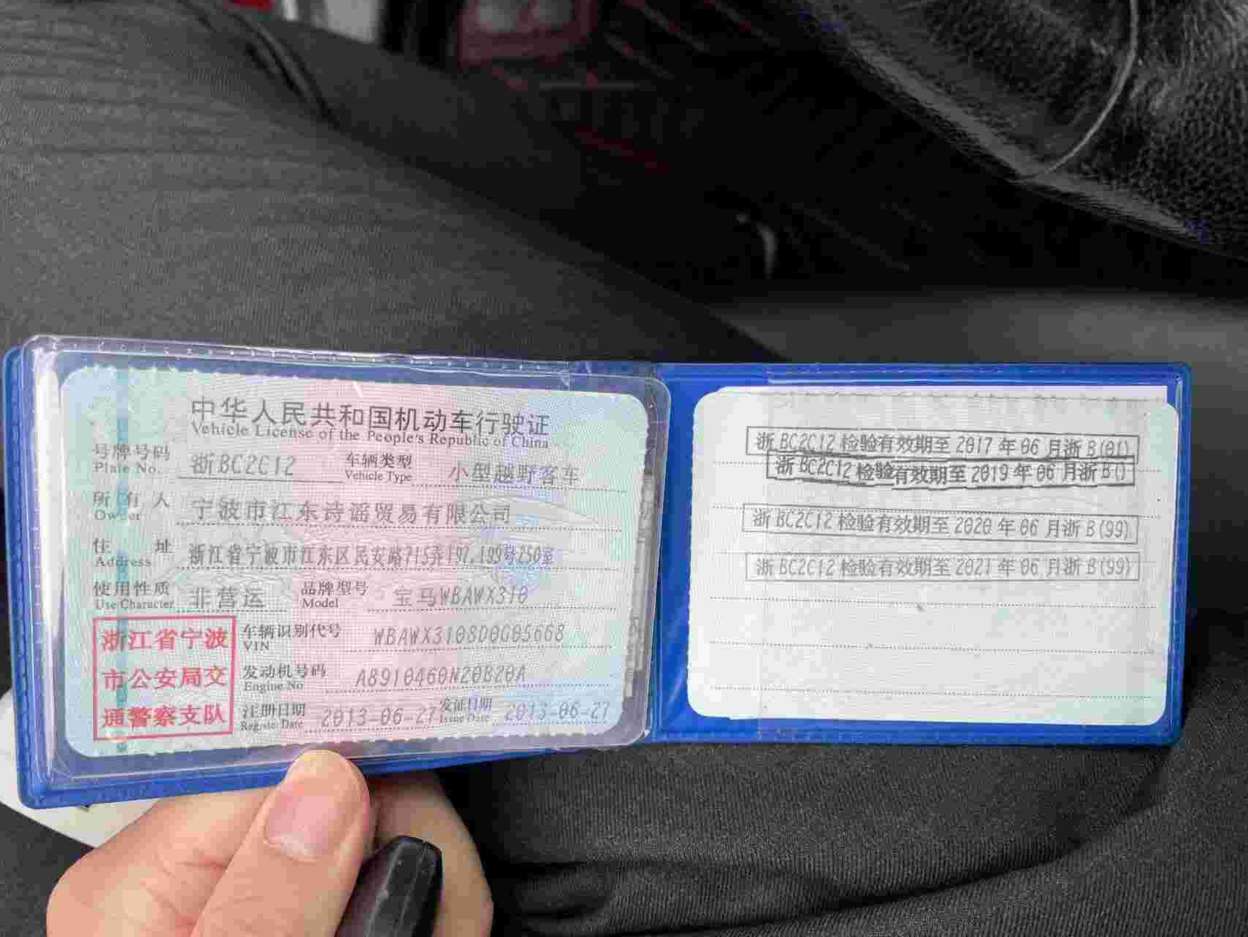 中华人民共和国机动车行驶证
Vehicle License of the People's Republic of China
号牌号码 浙BC2C12 车辆类型 小型越野客车
Plate No. Vehicle Type
所有人 宁波市江东诗韬贸易有限公司
Owner
住址 浙江省宁波市江东区民安路715弄197,199号750室
Address
使用性质 非营运 品牌型号 宝马WBAWX310
Use Character Model
浙江省宁波
市公安局交
通警察支队
车辆识别代号 WBAWX3108D0G05668
VIN
发动机号码 A8910460N20B20A
Engine No
注册日期 2013-06-27 发证日期 2013-06-27
Register Date Issue Date
浙BC2C12 检验有效期至 2017 年 06 月浙 B(01)
浙 BC2C12 检验有效期至 2019 年 06 月浙 B()
浙 BC2C12 检验有效期至 2020 年 06 月浙 B(99)
浙 BC2C12 检验有效期至 2021 年 06 月浙 B(99)